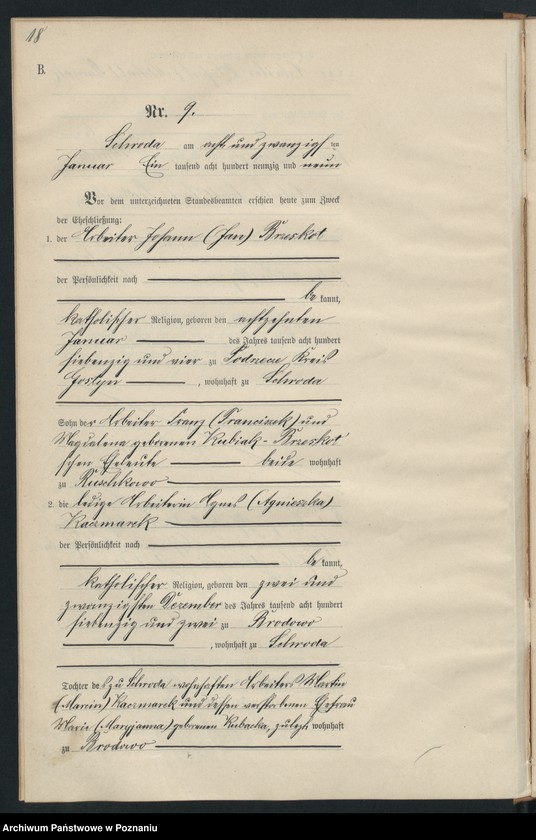 18
B.
Nr. 9.
Schroda am acht und zwanzigsten
Januar Ein tausend acht hundert neunzig und neun
Vor dem unterzeichneten Standesbeamten erschien heute zum Zweck
der Eheschließung:
1. der Arbeiter Johann (Jan) Brzeskot
der Persönlichkeit nach
be kannt,
katholischer Religion, geboren den achtzehnten
Januar des Jahres tausend acht hundert
siebenzig und vier zu Kreis
Gostyn, wohnhaft zu Schroda
Sohn der Arbeiter Franz (Franciszek) und
Magdalena geborenen Kubiak-Brzeskot'
schen Eheleute beide wohnhaft
zu Ruschkowo
2. die ledige Arbeiterin Agnes (Agnieszka)
Kaczmarek
der Persönlichkeit nach
be kannt,
katholischer Religion, geboren den zwei und
zwanzigsten Dezember des Jahres tausend acht hundert
siebenzig und zwei zu Brodowo
, wohnhaft zu Schroda
Tochter des zu Schroda wohnhaften Arbeiters Martin
(Marcin) Kaczmarek und dessen verstorbenen Ehefrau
Marie (Maryjanna) geborenen Kubacka, zuletzt wohnhaft
zu Brodowo
Archiwum Państwowe w Poznaniu